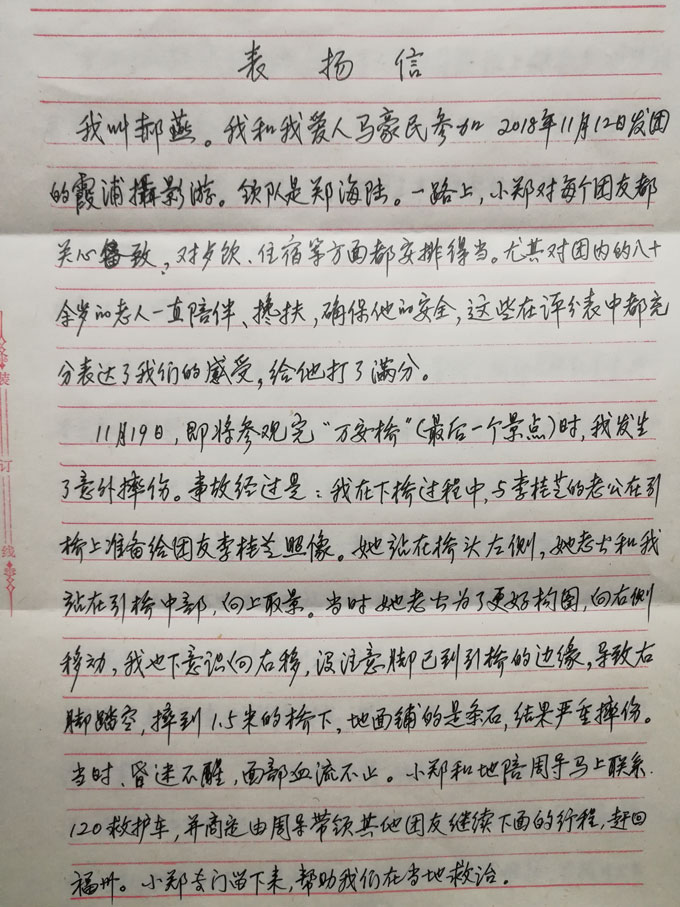 表扬信
我叫郝燕。我和我爱人马豪民参加2018年11月12日发团
的霞浦攝影游。领队是郑海陆。一路上,小郑对每个团友都
关心备致,对歺饮、住宿等方面都安排得当。尤其对团内的八十
余岁的老人一直陪伴、搀扶,确保他的安全,这些在评分表中都充
分表达了我们的感受,给他打了满分。
11月19日,即将参观完“万安桥”(最后一个景点)时,我发生
了意外摔伤。事故经过是:我在下桥过程中,与李桂芝的老公在引
桥上准备给团友李桂芝照像。她站在桥头左侧,她老公和我
站在引桥中部,向上取景。当时她老公为了更好构图,向右侧
移动,我也下意识向右移,没注意脚已到引桥的边缘,导致右
脚踏空,摔到1.5米的桥下,地面铺的是条石,结果严重摔伤。
当时、昏迷不醒,面部血流不止。小郑和地陪周导马上联系
120救护车,并商定由周导带领其他团友继续下面的行程,赶回
福州。小郑专门留下来,帮助我们在当地救治。
装
订
线